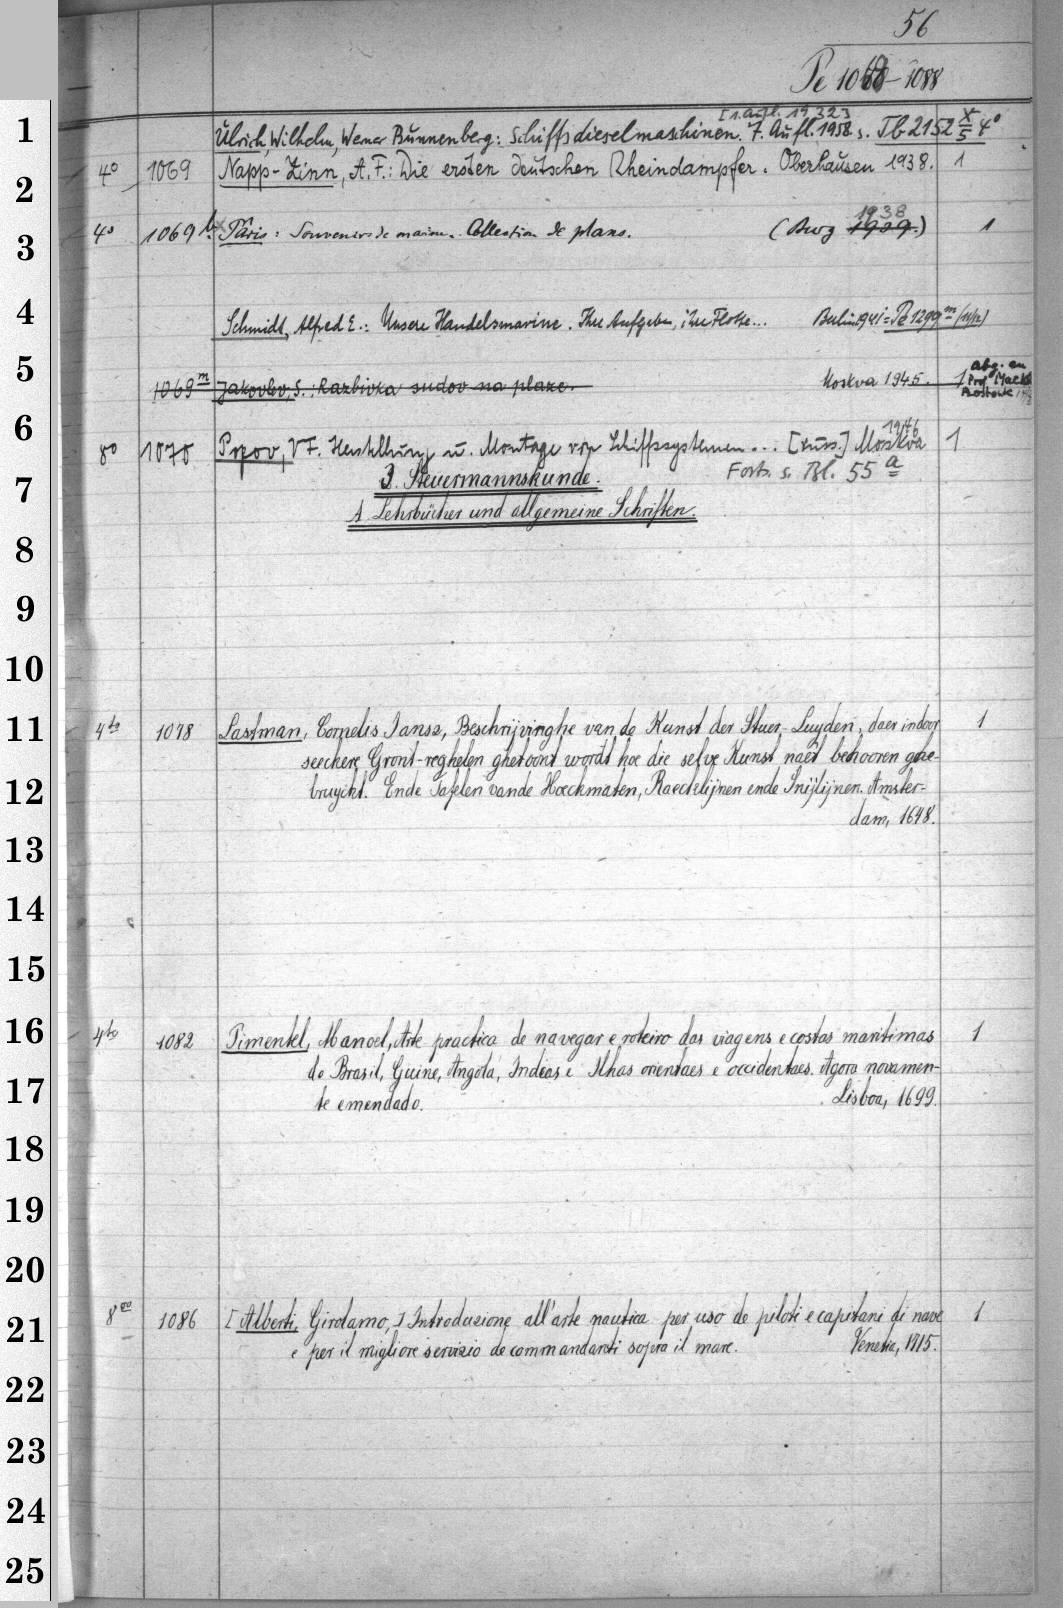 56
Pe 1068-1088
[1. Aufl. 19 323]
1 Ulrich, Wilhelm, Werner Bunnenberg: Schiffsdieselmaschinen. 7. Aufl. 1958. s. Tb 2152 x/5 4°
2 4° 1069 Napp-Zinn, A. F.: Die ersten deutschen Rheindampfer. Oberhausen 1938. 1
1938
3 4° 1069 Pâris: Souvenirs de marine. Collection de plans. (Burg 1909.) 1
4 Schmidt, Alfred E.: Unsere Handelsmarine. Ihre Aufgaben, ihre Flotte... Berlin 1941 = Pe 1299 m
5 1069 m Jakovlev, S.: Razbivka sudov na plaze. Moskva 1945. 1 abg. an Prof. Rostock
1946
6 8° 1070 Popov, V F. Herstellung u. Montage von Schiffssystemen... [russ.] Moskva 1
7 3. Steuermannskunde. Forts. s. Bl. 55 a
A Lehrbücher und allgemeine Schriften.
8
9
10
11 4to 1078 Lastman, Cornelis Jansz, Beschrijvinghe van de Kunst der Stuer-Luyden, daer indoor 1
seeckere Gront-reghelen ghetoont wordt hoe die selve Kunst naer behooren ghe-
12 bruyckt. Ende Tafelen vande Hoeckmaten, Raecklijnen ende Snijlijnen. Amster-
dam, 1648.
13
14
15
16 4to 1082 Pimentel, Manoel, Arte practica de navegar e roteiro das viagens e costas maritimas 1
do Brasil, Guine, Angola, Indias e Ilhas orientaes e occidentaes. Agora novamen-
17 te emendado. Lisboa, 1699.
18
19
20
21 8vo 1086 [Alberti, Girolamo,] Introduzione all'arte nautica per uso de piloti e capitani di nave 1
e per il migliore servizio de commandanti sopra il mare. Venetia, 1715.
22
23
24
25